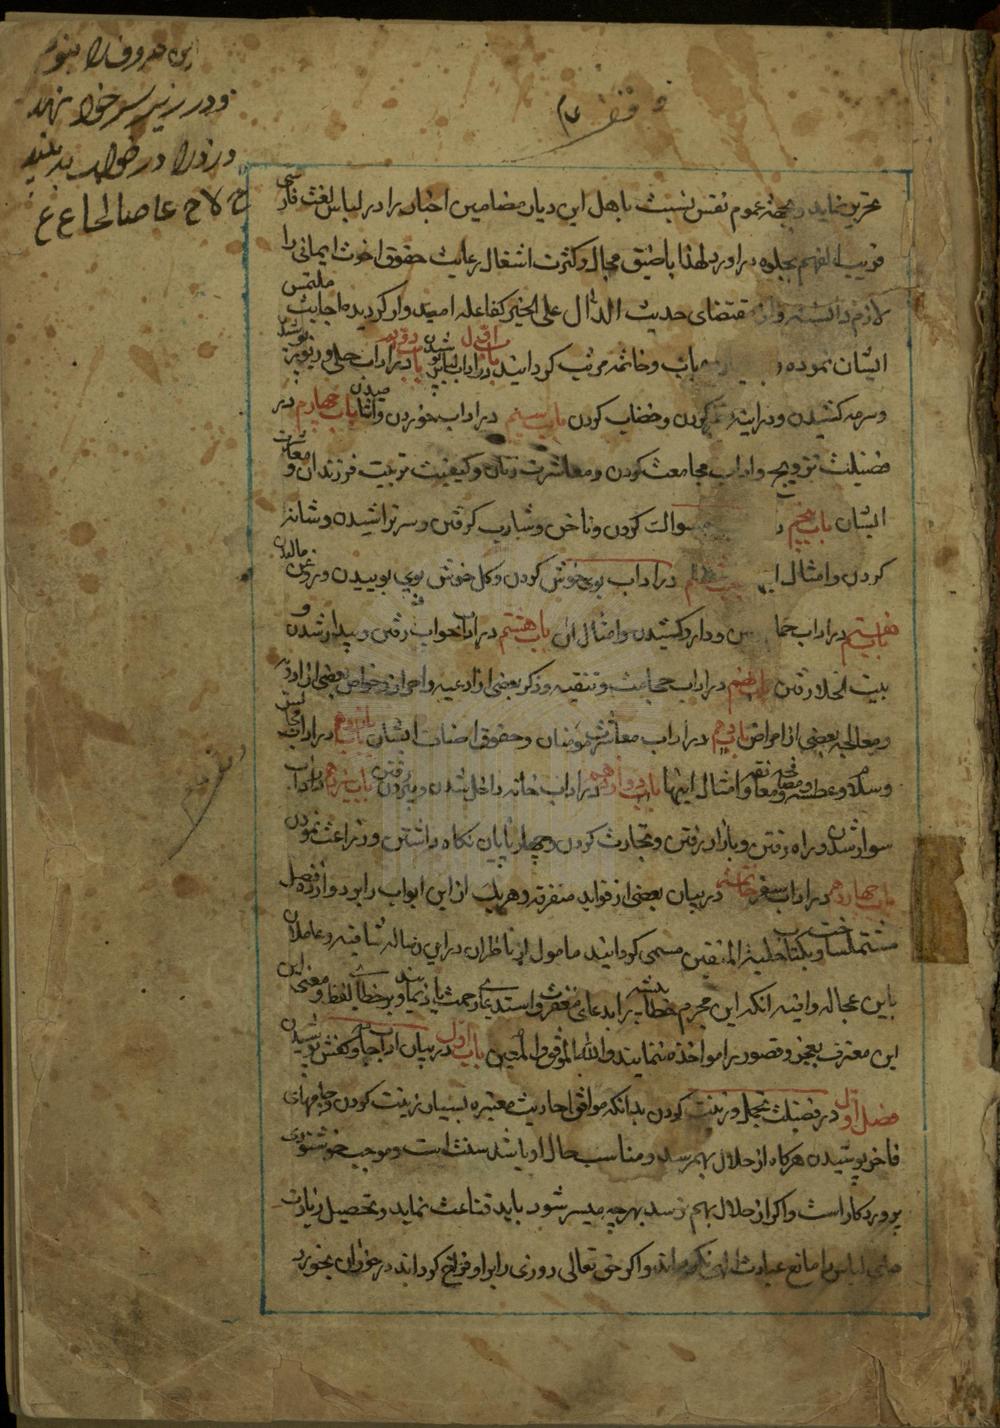 این حروف را بنویسد
و در زیر سر خود نهد
دزد را در خواب ببیند
وقف
تحریر نماید و بجهة عموم نفس نسبت باهل این دیار مضامین اخبار را در لباس لغت فارسی
قریب الفهم بجلوه در اورد لهذا با ضیق مجال و کثرت اشغال رعایت حقوق اخوت ایمانی را
لازم دانسته و از مقتضای حدیث الدال علی الخیر کفاعله امیدوار کردیده اجابت ملتمس
ایشان نموده باب و خاتمه مرتب کردانید باب اول در اداب لباس پوشیدن باب دویم در اداب حلی و زیور پوشیدن
و سرمه کشیدن و در اینه کردن و خضاب کردن باب سیم در اداب خوردن و اشامیدن باب چهارم در
فضیلت تزویج و اداب مجامعت کردن و معاشرت زنان و کیفیت تربیت فرزندان و معاشرت
ایشان باب پنجم در مسواک کردن و ناخن و شارب کرفتن و سر تراشیدن و شانه
کردن و امثال این باب ششم در اداب بوی خوش کردن و کل خوش بوی بوییدن و روغن مالیدن
باب هفتم در اداب حمام و دارو کشیدن و امثال ان باب هشتم در اداب خواب رفتن و بیدار شدن و
بیت الخلا رفتن باب نهم در اداب حجامت و تنقیه و ذکر بعضی از ادعیه و احراز و خواص بعضی از ادویه
و معالجه بعضی از امراض باب دهم در اداب معاشرت مومنان و حقوق اصناف ایشان باب یازدهم در اداب مجالس
و سلام و عطسه و مصافحه و معانقه و امثال اینها باب دوازدهم در اداب خانه داخل شدن و بیرون رفتن باب سیزدهم در اداب
سوار شدن و راه رفتن و بازار رفتن و تجارت کردن و چهار پایان نکاه داشتن و زراعت نمودن
باب چهاردهم در اداب سفر خاتمه در بیان بعضی از فواید متفرقه و هریک از این ابواب را بر دوازده فصل
مشتمل ساخت و بکتاب حلیة المتقین مسمی کردانید مامول از ناظران در این رساله شافیه و عاملان
باین عجاله وافیه انکه این مجرم خطا پیشه را بدعای مغفرت و استدعای رحمت یاد نمایند و بر خطای لفظ و معنی
این معترف بعجز و قصور را مواخذه ننمایند والله الموفق والمعین باب اول در بیان اداب جامه و کفش پوشیدن
فصل اول در فضیلت تجمل و زینت کردن بدانکه موافق احادیث معتبره بسیار زینت کردن و جامهای
فاخر پوشیدن هرکاه از حلال بهم رسد و مناسب حال او باشد سنت است و موجب خوشنودی
پروردکار است و اکر از حلال بهم نرسد بهر چه میسر شود باید قناعت نماید و تحصیل زیادت
لباس را مانع عبادت الهی نکرداند و اکر حق تعالی روزی را بر او فراخ کرداند در خور ان بخورد